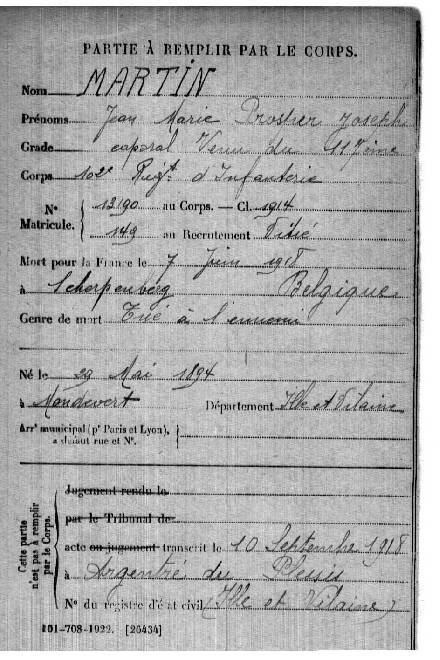 PARTIE À REMPLIR PAR LE CORPS.
Nom MARTIN
Prénoms Jean Marie Prosper Joseph
Grade caporal Venu du 117ème
Corps 102e Régt d'Infanterie
N° Matricule. { 12190 au Corps. — Cl. 1914
149 au Recrutement Vitré
Mort pour la France le 7 Juin 1918
à Scherpenberg Belgique
Genre de mort Tué à l'ennemi
Né le 29 Mai 1894
à Mondevert Département Ille et Vilaine
Arrt municipal (pr Paris et Lyon), à défaut rue et N°. {
Cette partie n'est pas à remplir par le Corps. {
Jugement rendu le
par le Tribunal de
acte ou jugement transcrit le 10 Septembre 1918
à Argentré du Plessis
N° du registre d'état civil (Ille et Vilaine)
101-708-1922. [26434]